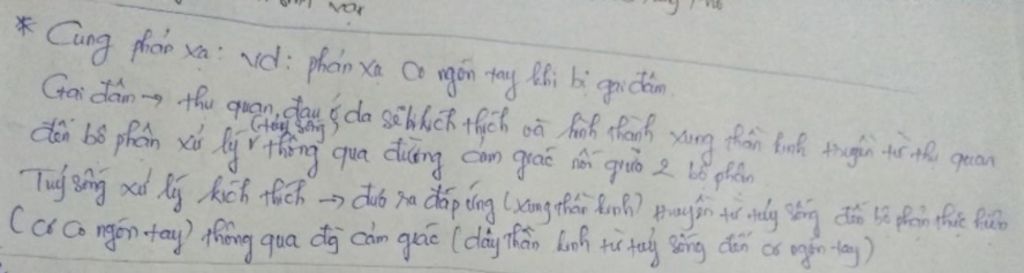 * Cung phản xạ: vd: phản xạ co ngón tay khi bị gai đâm.
Gai đâm → thụ quan đau ở da sẽ bị kích thích và hình thành xung thần kinh truyền từ thụ quan
đến bộ phận xử lý (tủy sống) thông qua đường cảm giác nối giữa 2 bộ phận
Tuỷ sống xử lý kích thích → đưa ra đáp ứng (xung thần kinh) truyền từ tủy sống đến bộ phận thực hiện
(cơ co ngón tay) thông qua đg cảm giác (dây thần kinh từ tuỷ sống đến cơ ngón tay)